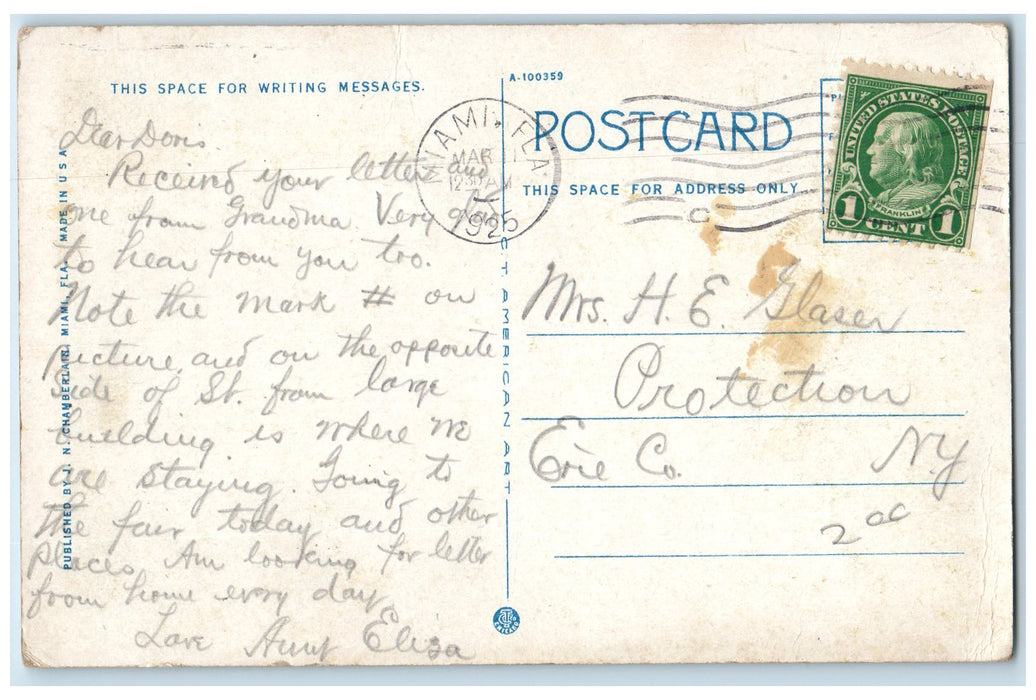 THIS SPACE FOR WRITING MESSAGES.
Dear Doris.
Received your letter and
one from Grandma Very glad
to hear from you too.
Note the mark # on
picture and on the opposite
side of St. from large
building is where we
are staying. Going to
the fair today and other
places. Am looking for letter
from home every day.
Love Aunt Eliza
PUBLISHED BY J. N. CHAMBERLAIN, MIAMI, FLA. MADE IN U S A
C. T. AMERICAN ART
A-100359
POST CARD
THIS SPACE FOR ADDRESS ONLY
MIAMI, FLA
MAR 1
12-30 AM
192
UNITED STATES POSTAGE
FRANKLIN
1 CENT 1
Mrs. H. E. Glaser
Protection
Erie Co. N.Y
2 00
CHICAGO